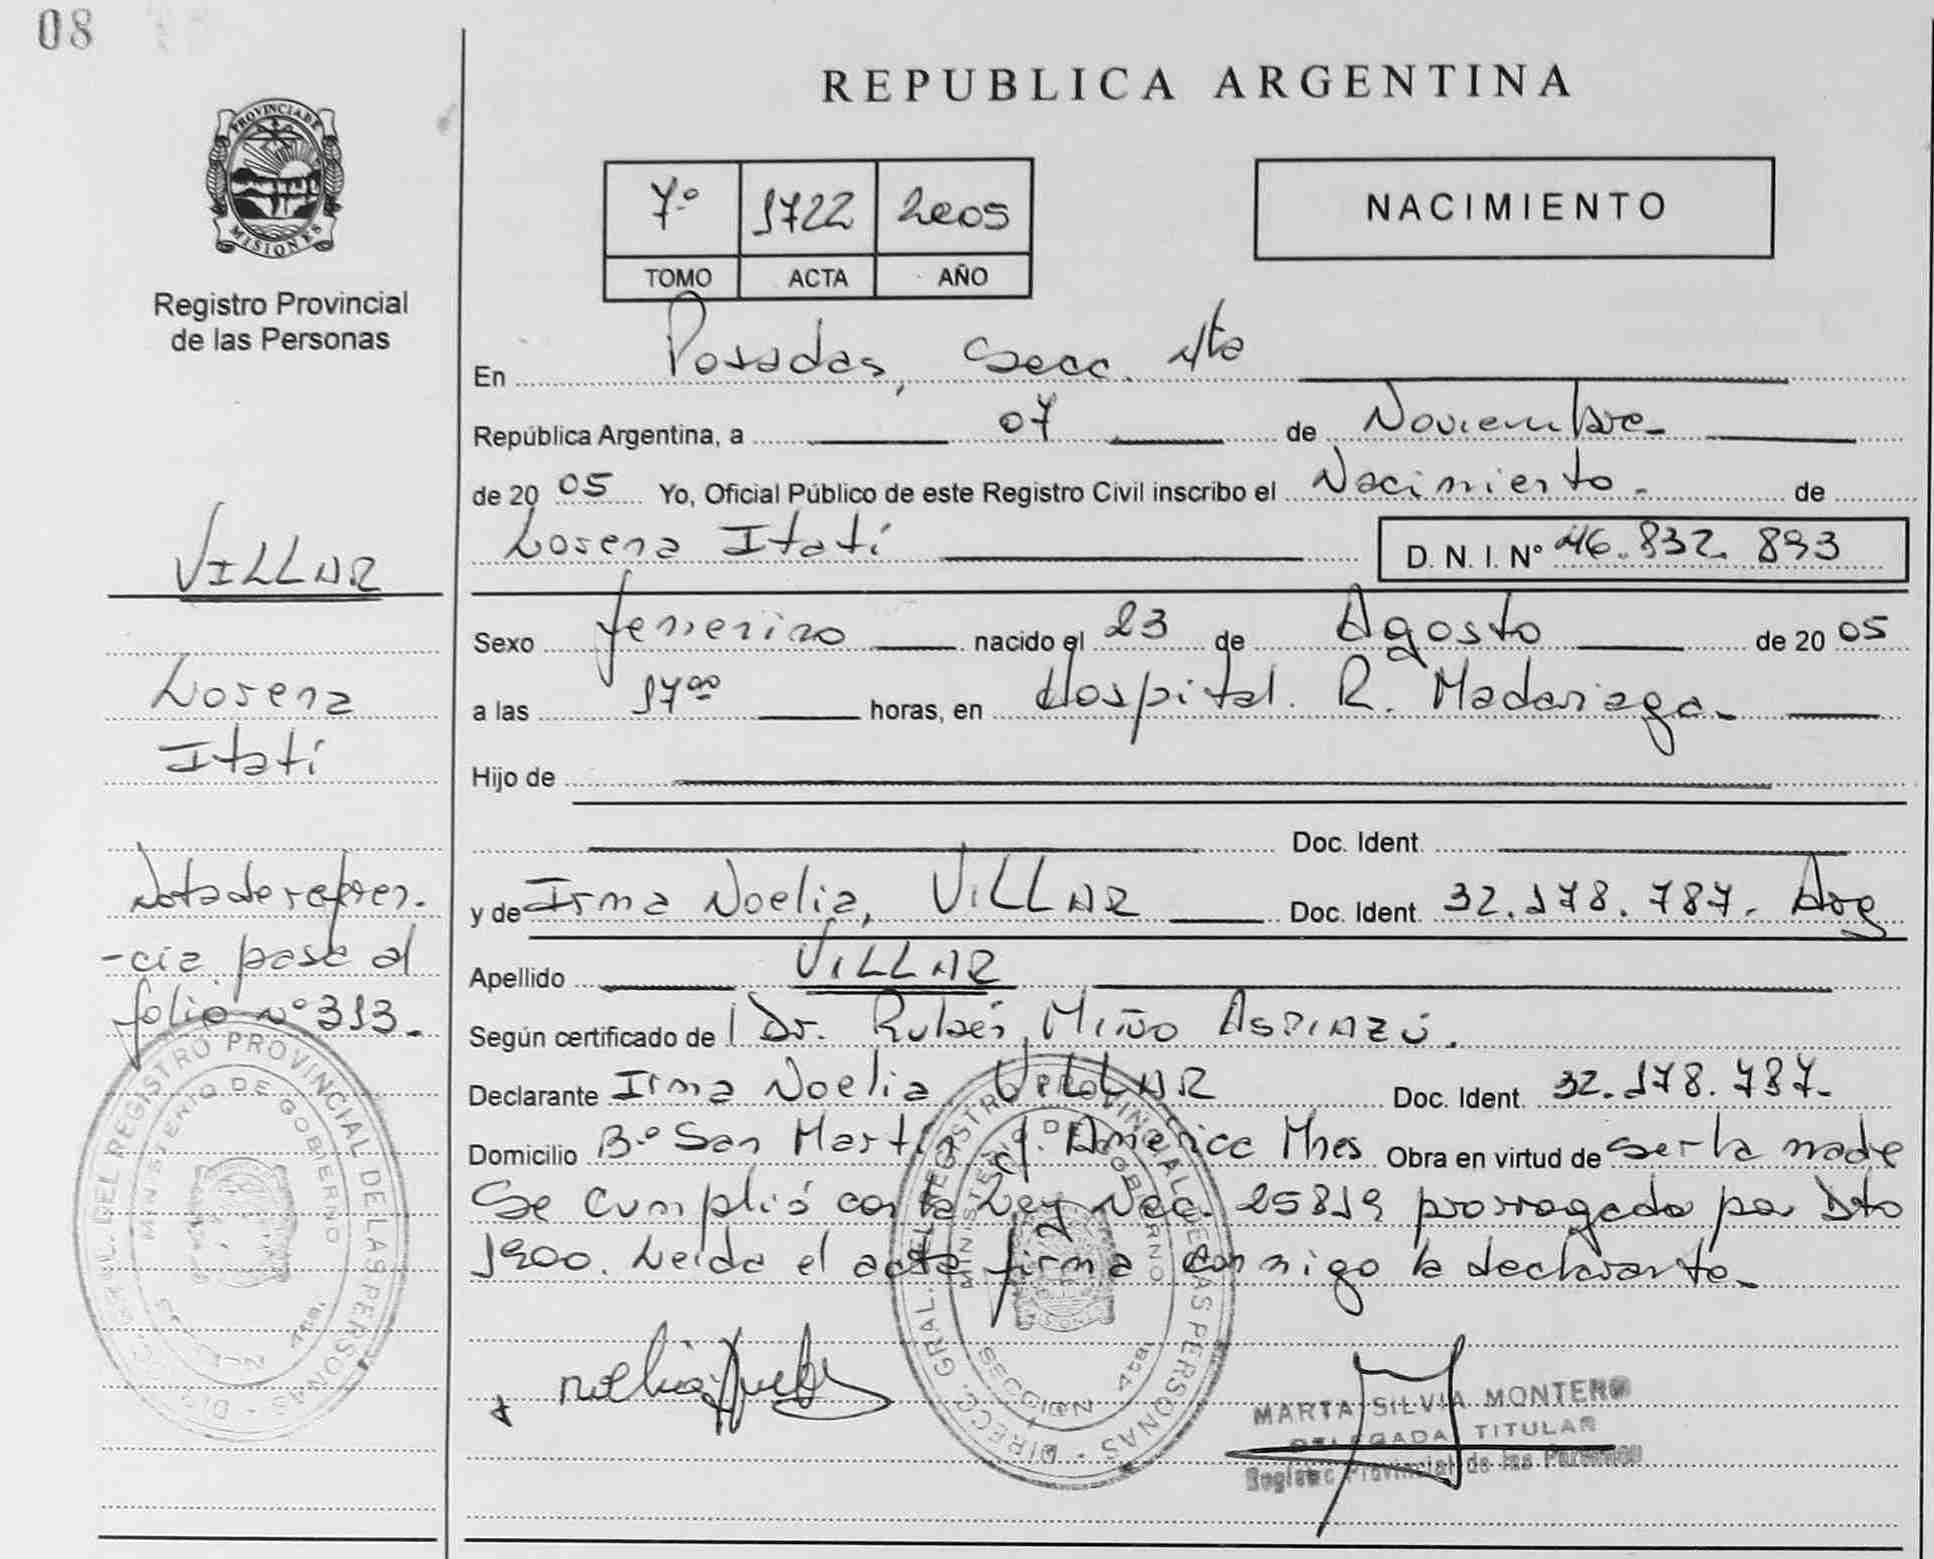 08
PROVINCIA DE
MISIONES
Registro Provincial
de las Personas
VILLAR
Lorena
Itatí
Nota de referen.
-cia pase al
folio nº 313.
REPUBLICA ARGENTINA
7º 1722 2005
TOMO ACTA AÑO
NACIMIENTO
En Posadas, Secc. 4ta
República Argentina, a 07 de Noviembre
de 20 05 Yo, Oficial Público de este Registro Civil inscribo el Nacimiento. de
Lorena Itatí D. N. I. Nº 46.832.893
Sexo femenino nacido el 23 de Agosto de 20 05
a las 17⁰⁰ horas, en Hospital. R. Madariaga.
Hijo de
Doc. Ident.
y de Irma Noelia, VILLAR Doc. Ident. 32.178.787. Arg
Apellido VILLAR
Según certificado de Dr. Rubén Miño
Declarante Irma Noelia VILLAR Doc. Ident. 32.178.787.
Domicilio Bº San Martín América Mnes Obra en virtud de ser la madre
Se cumplió con la Ley Nac. 25819 prorrogada por Dto
1900. Leída el acta firma conmigo la declarante.
DIRECC. GRAL. DEL REGISTRO PROVINCIAL DE LAS PERSONAS
MINISTERIO DE GOBIERNO
SECCION 4ta.
MARTA SILVIA MONTERO
DELEGADA TITULAR
Registro Provincial de las Personas